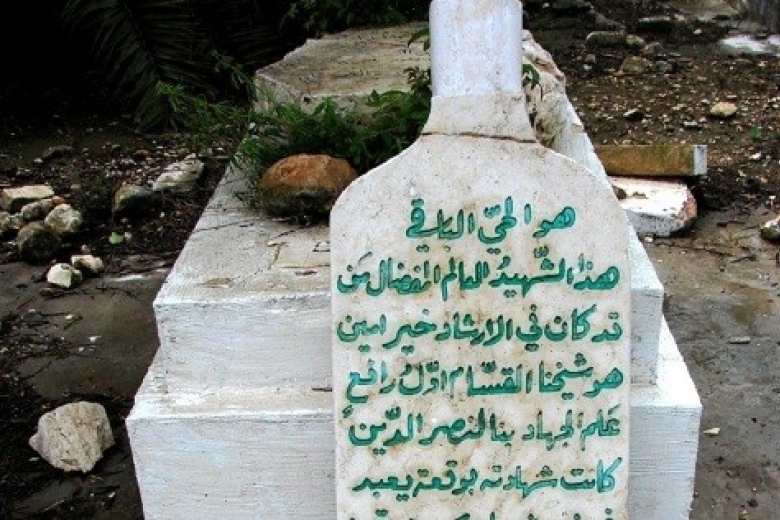 هو الحيّ الباقي
هذا الشّهيدُ العالم المفضال مَن
قد كان في الارشاد خير امين
هو شيخنا القسّام اوّلُ رافعٍ
عَلم الجهاد بنا لنصر الدّين
كانت شهادته بوقعة يعبد